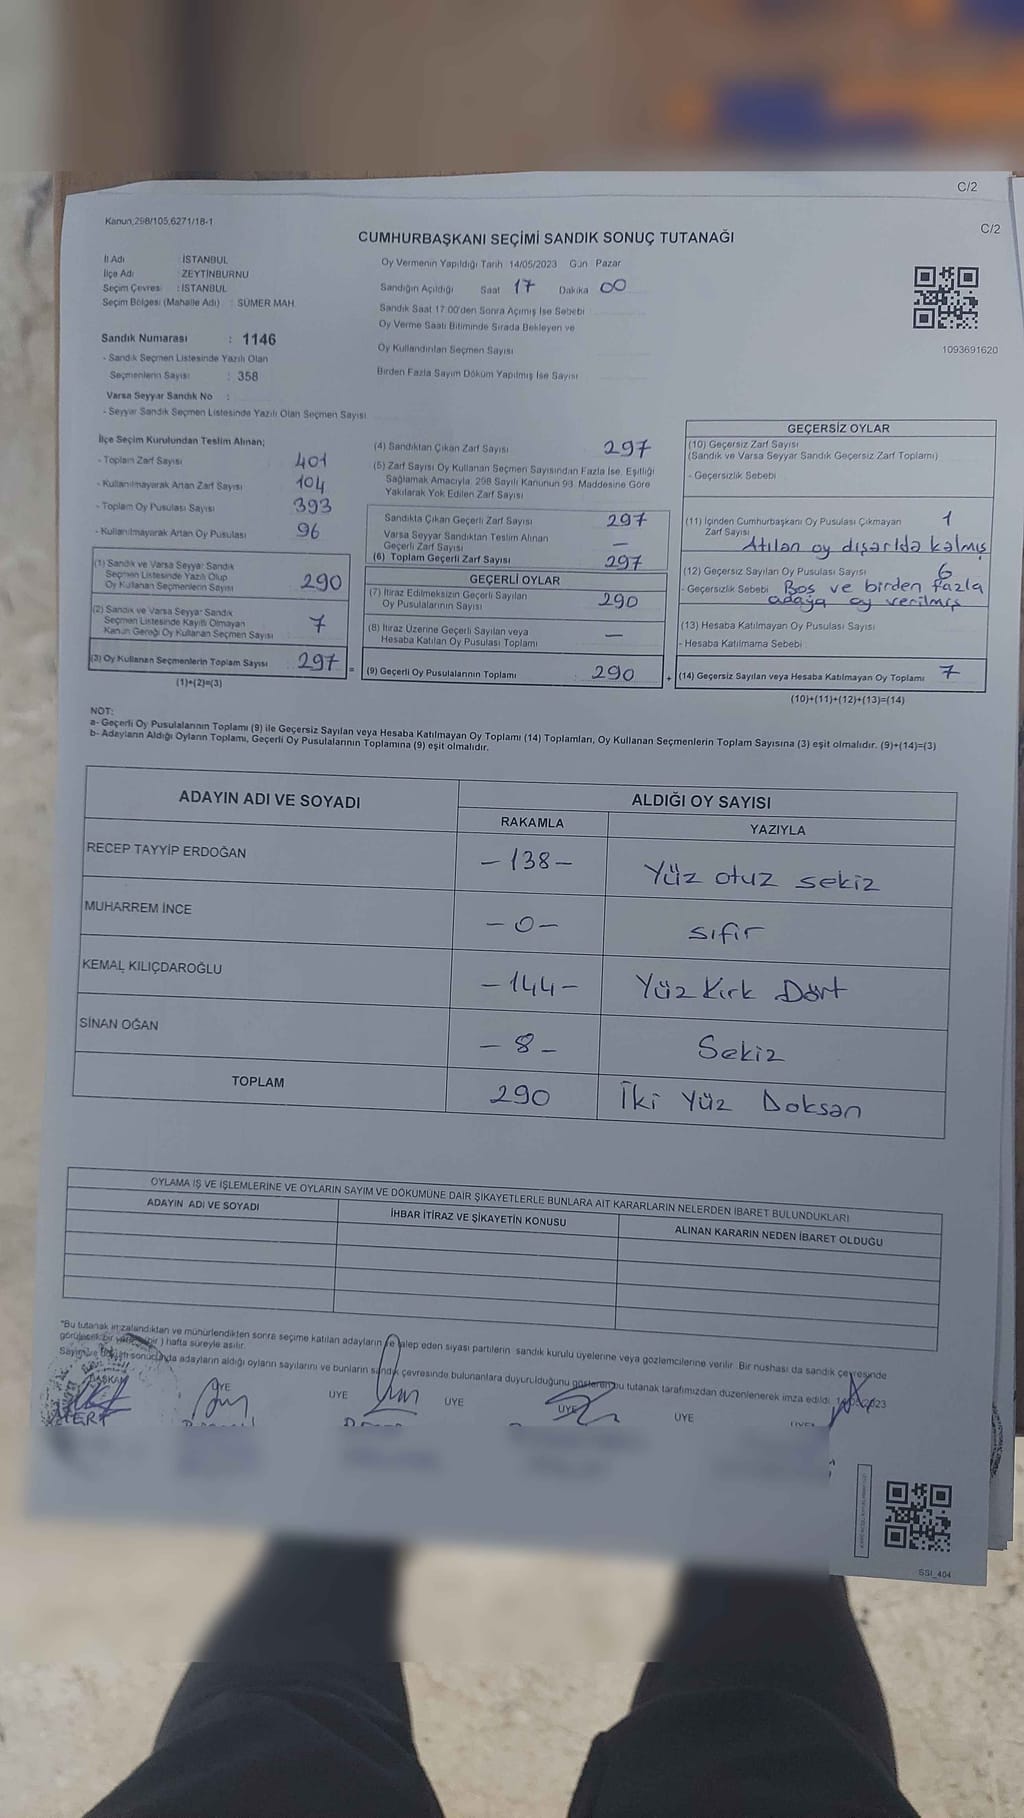 C/2
C/2
Kanun,298/105,6271/18-1
CUMHURBAŞKANI SEÇİMİ SANDIK SONUÇ TUTANAĞI
İl Adı : İSTANBUL
İlçe Adı : ZEYTİNBURNU
Seçim Çevresi : İSTANBUL
Seçim Bölgesi (Mahalle Adı) : SÜMER MAH.
Sandık Numarası : 1146
- Sandık Seçmen Listesinde Yazılı Olan
Seçmenlerin Sayısı : 358
Varsa Seyyar Sandık No :
- Seyyar Sandık Seçmen Listesinde Yazılı Olan Seçmen Sayısı
Oy Vermenin Yapıldığı Tarih 14/05/2023 Gün Pazar
Sandığın Açıldığı Saat 17 Dakika 00
Sandık Saat 17.00'den Sonra Açılmış İse Sebebi
Oy Verme Saati Bitiminde Sırada Bekleyen ve
Oy Kullandırılan Seçmen Sayısı
Birden Fazla Sayım Döküm Yapılmış İse Sayısı
1093691620
İlçe Seçim Kurulundan Teslim Alınan;
- Toplam Zarf Sayısı 401
- Kullanılmayarak Artan Zarf Sayısı 104
- Toplam Oy Pusulası Sayısı 393
- Kullanılmayarak Artan Oy Pusulası 96
(1) Sandık ve Varsa Seyyar Sandık
Seçmen Listesinde Yazılı Olup
Oy Kullanan Seçmenlerin Sayısı 290
(2) Sandık ve Varsa Seyyar Sandık
Seçmen Listesinde Kayıtlı Olmayan
Kanun Gereği Oy Kullanan Seçmen Sayısı 7
(3) Oy Kullanan Seçmenlerin Toplam Sayısı 297 =
(1)+(2)=(3)
(4) Sandıktan Çıkan Zarf Sayısı 297
(5) Zarf Sayısı Oy Kullanan Seçmen Sayısından Fazla İse, Eşitliği
Sağlamak Amacıyla, 298 Sayılı Kanunun 98. Maddesine Göre
Yakılarak Yok Edilen Zarf Sayısı
Sandıkta Çıkan Geçerli Zarf Sayısı 297
Varsa Seyyar Sandıktan Teslim Alınan
Geçerli Zarf Sayısı —
(6) Toplam Geçerli Zarf Sayısı 297
GEÇERLİ OYLAR
(7) İtiraz Edilmeksizin Geçerli Sayılan
Oy Pusulalarının Sayısı 290
(8) İtiraz Üzerine Geçerli Sayılan veya
Hesaba Katılan Oy Pusulası Toplamı —
(9) Geçerli Oy Pusulalarının Toplamı : 290 +
GEÇERSİZ OYLAR
(10) Geçersiz Zarf Sayısı
(Sandık ve Varsa Seyyar Sandık Geçersiz Zarf Toplamı)
- Geçersizlik Sebebi
(11) İçinden Cumhurbaşkanı Oy Pusulası Çıkmayan 1
Zarf Sayısı Atılan oy dışarıda kalmış
(12) Geçersiz Sayılan Oy Pusulası Sayısı 6
- Geçersizlik Sebebi Boş ve birden fazla
adaya oy verilmiş
(13) Hesaba Katılmayan Oy Pusulası Sayısı
- Hesaba Katılmama Sebebi
(14) Geçersiz Sayılan veya Hesaba Katılmayan Oy Toplamı 7
(10)+(11)+(12)+(13)=(14)
NOT:
a- Geçerli Oy Pusulalarının Toplamı (9) ile Geçersiz Sayılan veya Hesaba Katılmayan Oy Toplamı (14) Toplamları, Oy Kullanan Seçmenlerin Toplam Sayısına (3) eşit olmalıdır. (9)+(14)=(3)
b- Adayların Aldığı Oyların Toplamı, Geçerli Oy Pusulalarının Toplamına (9) eşit olmalıdır.
ADAYIN ADI VE SOYADI ALDIĞI OY SAYISI
RAKAMLA YAZIYLA
RECEP TAYYİP ERDOĞAN –138– Yüz otuz sekiz
MUHARREM İNCE –0– sıfır
KEMAL KILIÇDAROĞLU –144– Yüz Kırk Dört
SİNAN OĞAN –8– Sekiz
TOPLAM 290 İki Yüz Doksan
OYLAMA İŞ VE İŞLEMLERİNE VE OYLARIN SAYIM VE DÖKÜMÜNE DAİR ŞİKAYETLERLE BUNLARA AİT KARARLARIN NELERDEN İBARET BULUNDUKLARI
ADAYIN ADI VE SOYADI İHBAR İTİRAZ VE ŞİKAYETİN KONUSU ALINAN KARARIN NEDEN İBARET OLDUĞU
"Bu tutanak imzalandıktan ve mühürlendikten sonra seçime katılan adayların ve talep eden siyasi partilerin sandık kurulu üyelerine veya gözlemcilerine verilir. Bir nushası da sandık çevresinde
görülecek bir yere ( bir ) hafta süreyle asılır.
Sayım ve döküm sonucunda adayların aldığı oyların sayılarını ve bunların sandık çevresinde bulunanlara duyurulduğunu gösteren bu tutanak tarafımızdan düzenlenerek imza edildi. 14/05/2023
BAŞKAN ÜYE ÜYE ÜYE ÜYE ÜYE ÜYE
MERT
SSI_404